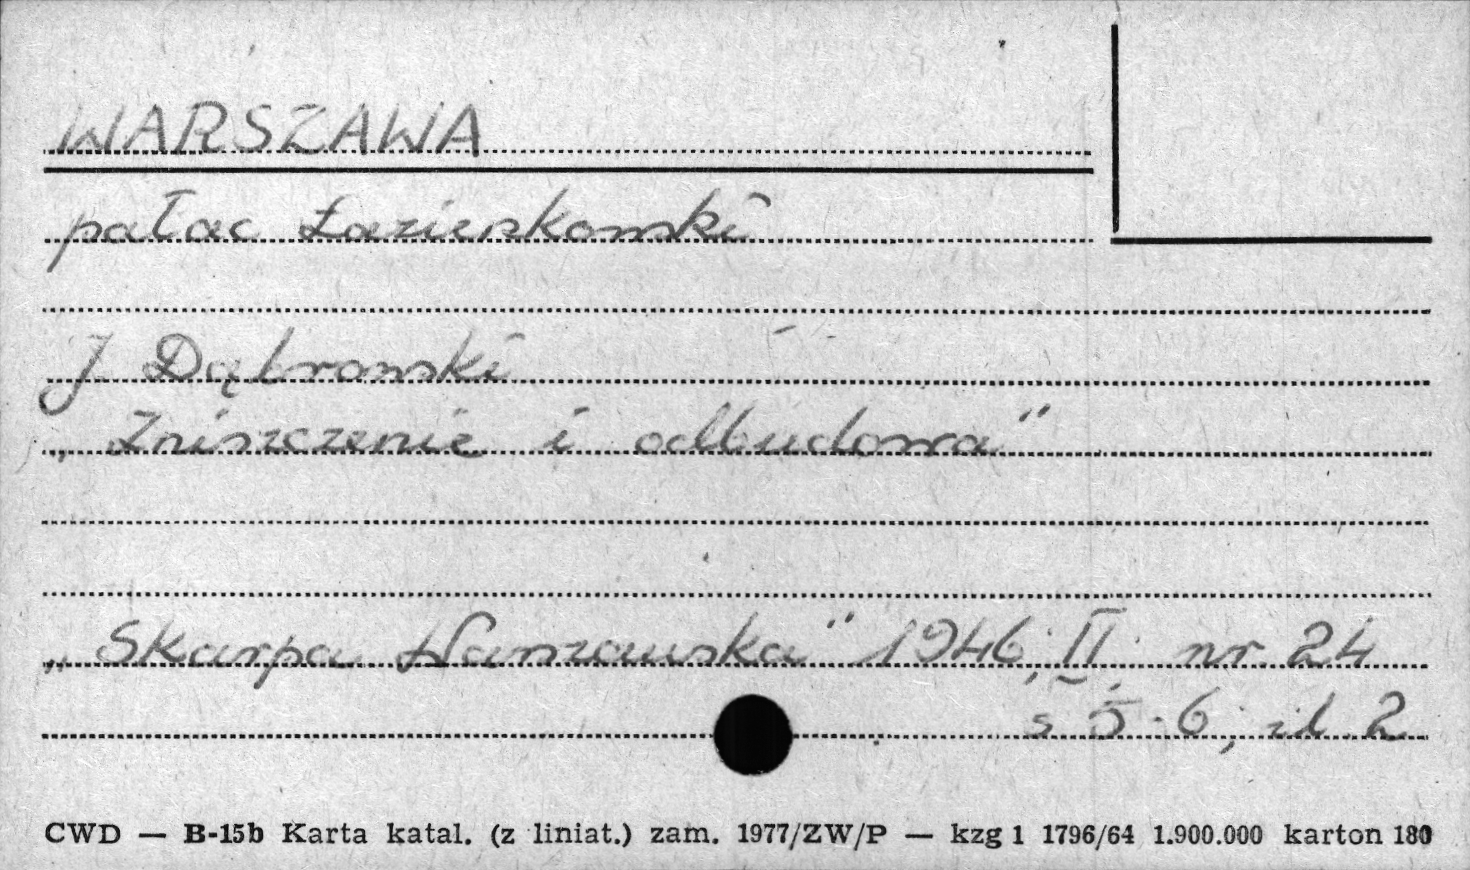 WARSZAWA
pałac Łazienkowski
J. Dąbrowski
„Zniszczenie i odbudowa"
„Skarpa Warszawska" 1946; II; nr. 24
s 5-6; il. 2
CWD — B-15b Karta katal. (z liniat.) zam. 1977/ZW/P — kzg 1 1796/64 1.900.000 karton 180